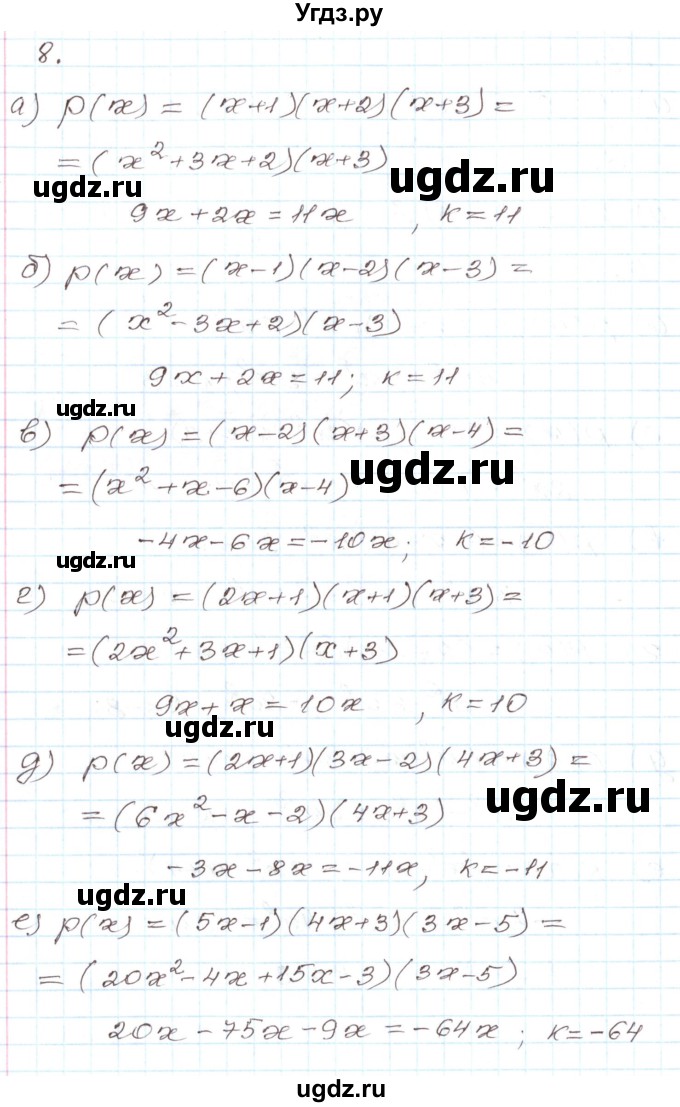 Угдз.ру
8.
а) p(x) = (x+1)(x+2)(x+3) =
= (x²+3x+2)(x+3)
ugdz.ru
ugdz.ru
9x+2x=11x , k=11
б) p(x) = (x-1)(x-2)(x-3) =
= (x²-3x+2)(x-3)
9x+2x=11; k=11
ugdz.ru
в) p(x) = (x-2)(x+3)(x-4) =
= (x²+x-6)(x-4)
ugdz.ru
-4x-6x=-10x; k=-10
ugdz.ru
г) p(x) = (2x+1)(x+1)(x+3) =
= (2x²+3x+1)(x+3)
9x+x=10x , k=10
ugdz.ru
д) p(x) = (2x+1)(3x-2)(4x+3) =
ugdz.ru
= (6x²-x-2)(4x+3)
-3x-8x=-11x, k=-11
ugdz.ru
е) p(x) = (5x-1)(4x+3)(3x-5) =
= (20x²-4x+15x-3)(3x-5)
20x-75x-9x=-64x; k=-64
ugdz.ru